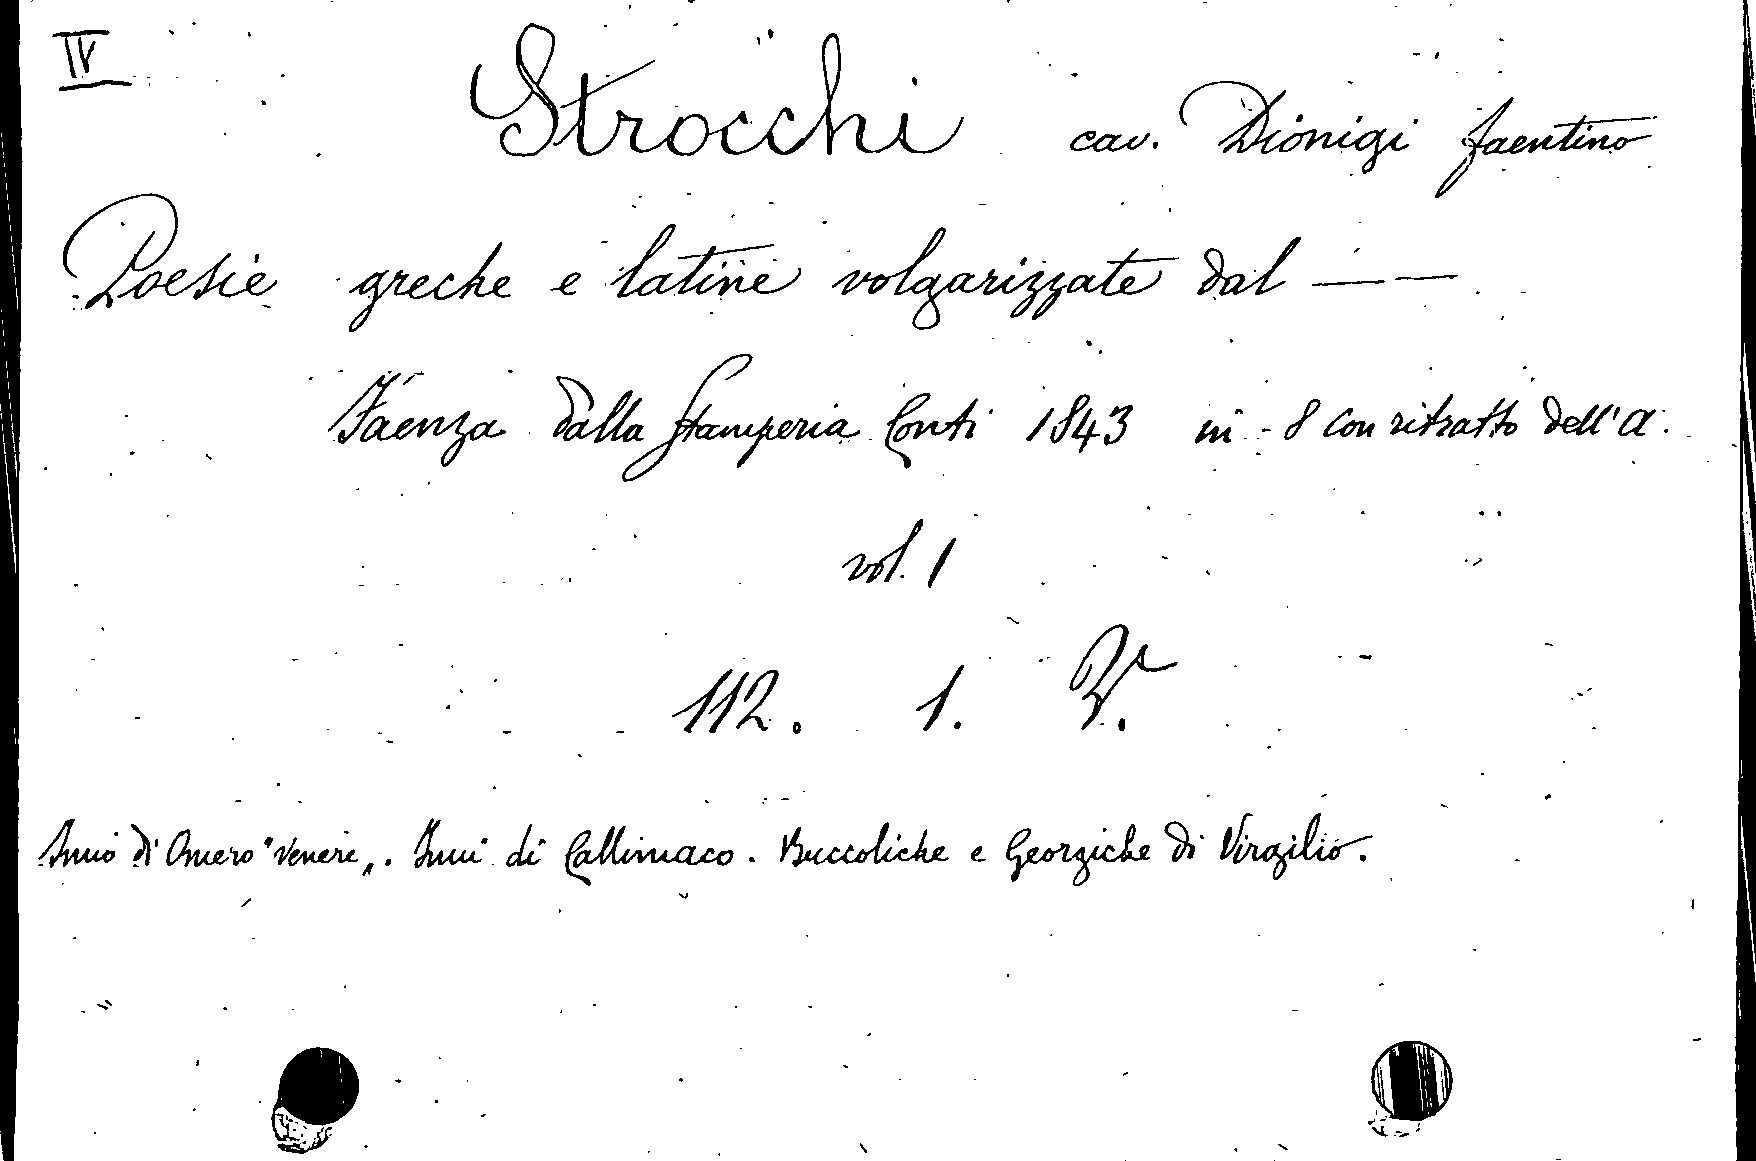 IV
Strocchi cav. Dionigi faentino
Poesie greche e latine volgarizzate dal — —
Faenza dalla Stamperia Conti 1843 in-8 con ritratto dell'A.
vol. 1
112. 1. V.
Inno di Omero "Venere„. Inni di Callimaco. Buccoliche e Georgiche di Virgilio.